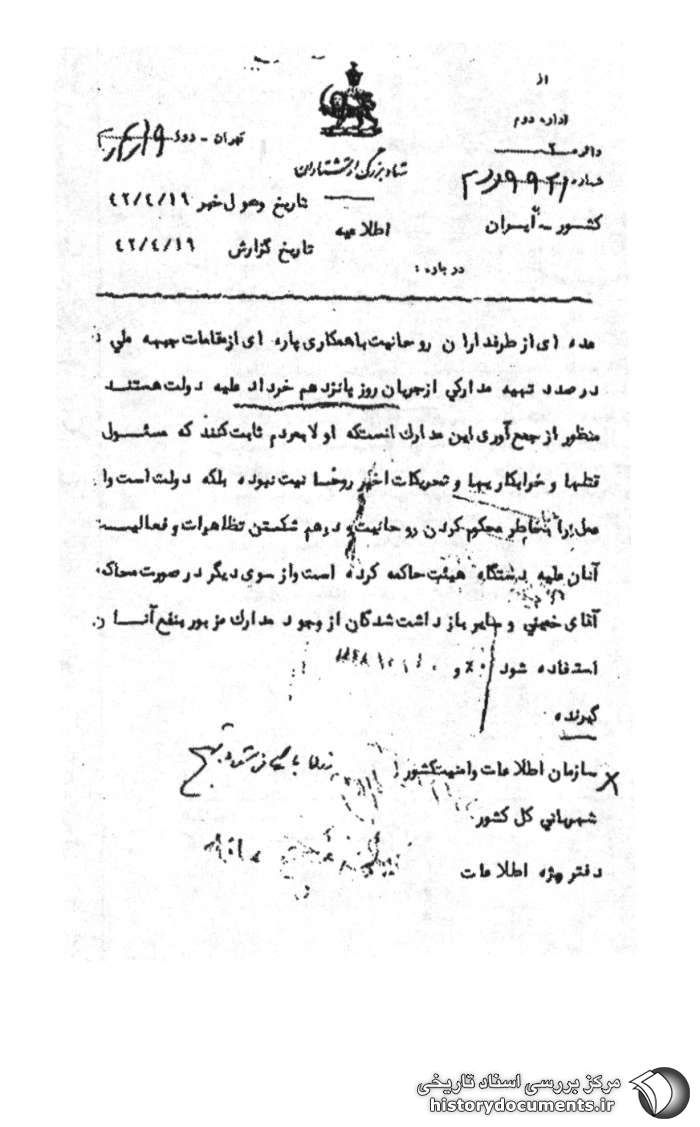 از
اداره دوم
دائره ۲
شماره
کشور - ایران
ستاد بزرگ ارتشتاران
اطلاعیه
درباره :
تهران -
تاریخ وصول خبر ۴۲/۴/۱۶
تاریخ گزارش ۴۲/۴/۱۶
عده ای از طرفداران روحانیت با همکاری پاره ای از مقامات جبهه ملي
درصدد تهیه مدارکي از جریان روز پانزدهم خرداد علیه دولت هستند
منظور از جمع آوری این مدارك اینستکه اولا بمردم ثابت کنند که مسئول
قتلها و خرابکاریها و تحریکات اخیر روحانیت نبوده بلکه دولت است و این
عمل را بخاطر محکوم کردن روحانیت و درهم شکستن تظاهرات و فعالیت
آنان علیه دستگاه هیئت حاکمه کرده است و از سوی دیگر در صورت محاکمه
آقای خمیني و سایر بازداشت شدگان از وجود مدارك مزبور بنفع آنان
استفاده شود
گیرنده
سازمان اطلاعات و امنیت کشور
شهرباني کل کشور
دفتر ویژه اطلاعات
مرکز بررسی اسناد تاریخی
historydocuments.ir